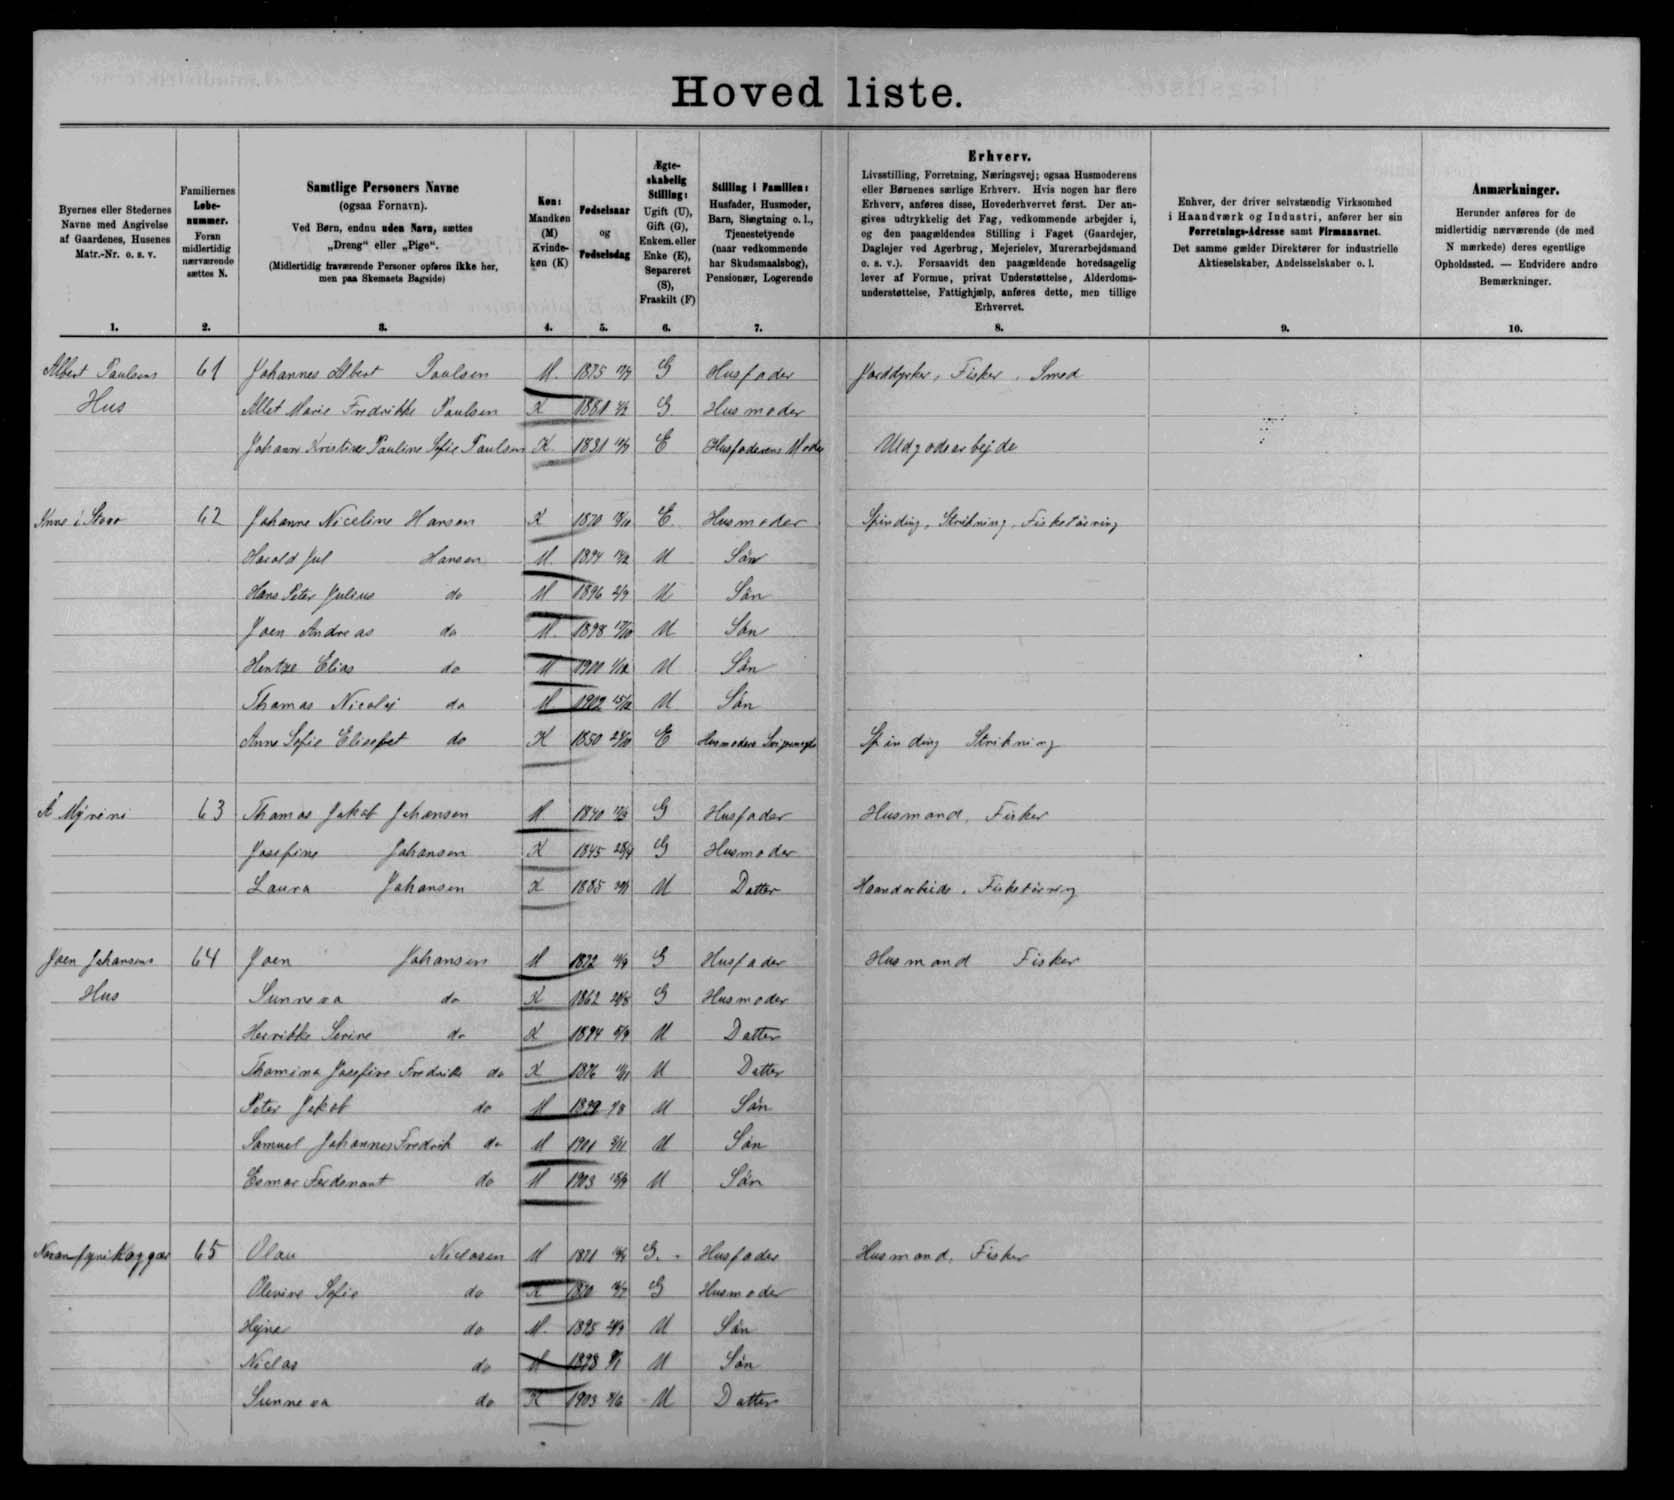 Hoved liste.
Byernes eller Stedernes Navne med Angivelse af Gaardenes, Husenes Matr.-Nr. o. s. v.
Familiernes Løbenummer. Foran midlertidig nærværende sættes N.
Samtlige Personers Navne (ogsaa Fornavn). Ved Børn, endnu uden Navn, sættes „Dreng“ eller „Pige“. (Midlertidig fraværende Personer opføres ikke her, men paa Skemaets Bagside)
Køn: Mandkøn (M) Kvindekøn (K)
Fødselsaar og Fødselsdag
Ægteskabelig Stilling: Ugift (U), Gift (G), Enkem. eller Enke (E), Separeret (S), Fraskilt (F)
Stilling i Familien: Husfader, Husmoder, Barn, Slægtning o. l., Tjenestetyende (naar vedkommende har Skudsmaalsbog), Pensionær, Logerende
Erhverv. Livsstilling, Forretning, Næringsvej; ogsaa Husmoderens eller Børnenes særlige Erhverv. Hvis nogen har flere Erhverv, anføres disse, Hovederhvervet først. Der angives udtrykkelig det Fag, vedkommende arbejder i, og den paagældendes Stilling i Faget (Gaardejer, Daglejer ved Agerbrug, Mejerielev, Murerarbejdsmand o. s. v.). Forsaavidt den paagældende hovedsagelig lever af Formue, privat Understøttelse, Alderdomsunderstøttelse, Fattighjælp, anføres dette, men tillige Erhvervet.
Enhver, der driver selvstændig Virksomhed i Haandværk og Industri, anfører her sin Forretnings-Adresse samt Firmanavnet. Det samme gælder Direktører for industrielle Aktieselskaber, Andelsselskaber o. l.
Anmærkninger. Herunder anføres for de midlertidig nærværende (de med N mærkede) deres egentlige Opholdssted. — Endvidere andre Bemærkninger.
1. 2. 3. 4. 5. 6. 7. 8. 9. 10.
Albert Paulsens 61 Johannes Albert Paulsen M. 1875 G Husfader Jorddyrker, Fisker, Smed
Hus Marie Fredrikke Paulsen K 1881 G Husmoder
Kristine Pauline Sofie Paulsen K. 1831 E Husfaderens Moder
62 Johanne Niceline Hansen K 1870 E Husmoder Spinding, Strikning, Fisketörring
Harald Jul Hansen M. 1894 U Sön
Hans Peter Julius do M 1896 U Sön
Joen Andreas do M. 1898 U Sön
Hentze Elias do M 1900 U Sön
Thomas Nicolej do M 1902 15/12 U Sön
Anne Sofie Elisefbet do K 1850 E Husmoders Spinding Strikning
Á Mýrini 63 Thomas Jakob Johansen M 1840 G Husfader Husmand, Fisker
Josefine Johansen K 1845 G Husmoder
Laura Johansen K 1885 U Datter Haandarbeide, Fisketörring
Joen Johansens 64 Joen Johansen M 1872 G Husfader Husmand Fisker
Hus Sunneva do K 1862 G Husmoder
Henrikke Serine do K 1894 U Datter
Thomina Josefine Fredrikke do K 1896 U Datter
Peter Jakob do M 1899 U Sön
Samuel Johannes Fredrik do M 1901 U Sön
Esmar Ferdenant do M 1903 U Sön
65 Olav Niclasen M 1871 G. Husfader Husmand, Fisker
Olevine Sofie do K 1870 G Husmoder
do M. 1895 U Sön
Niclas do M 1898 U Sön
Sunneva do K 1903 U Datter